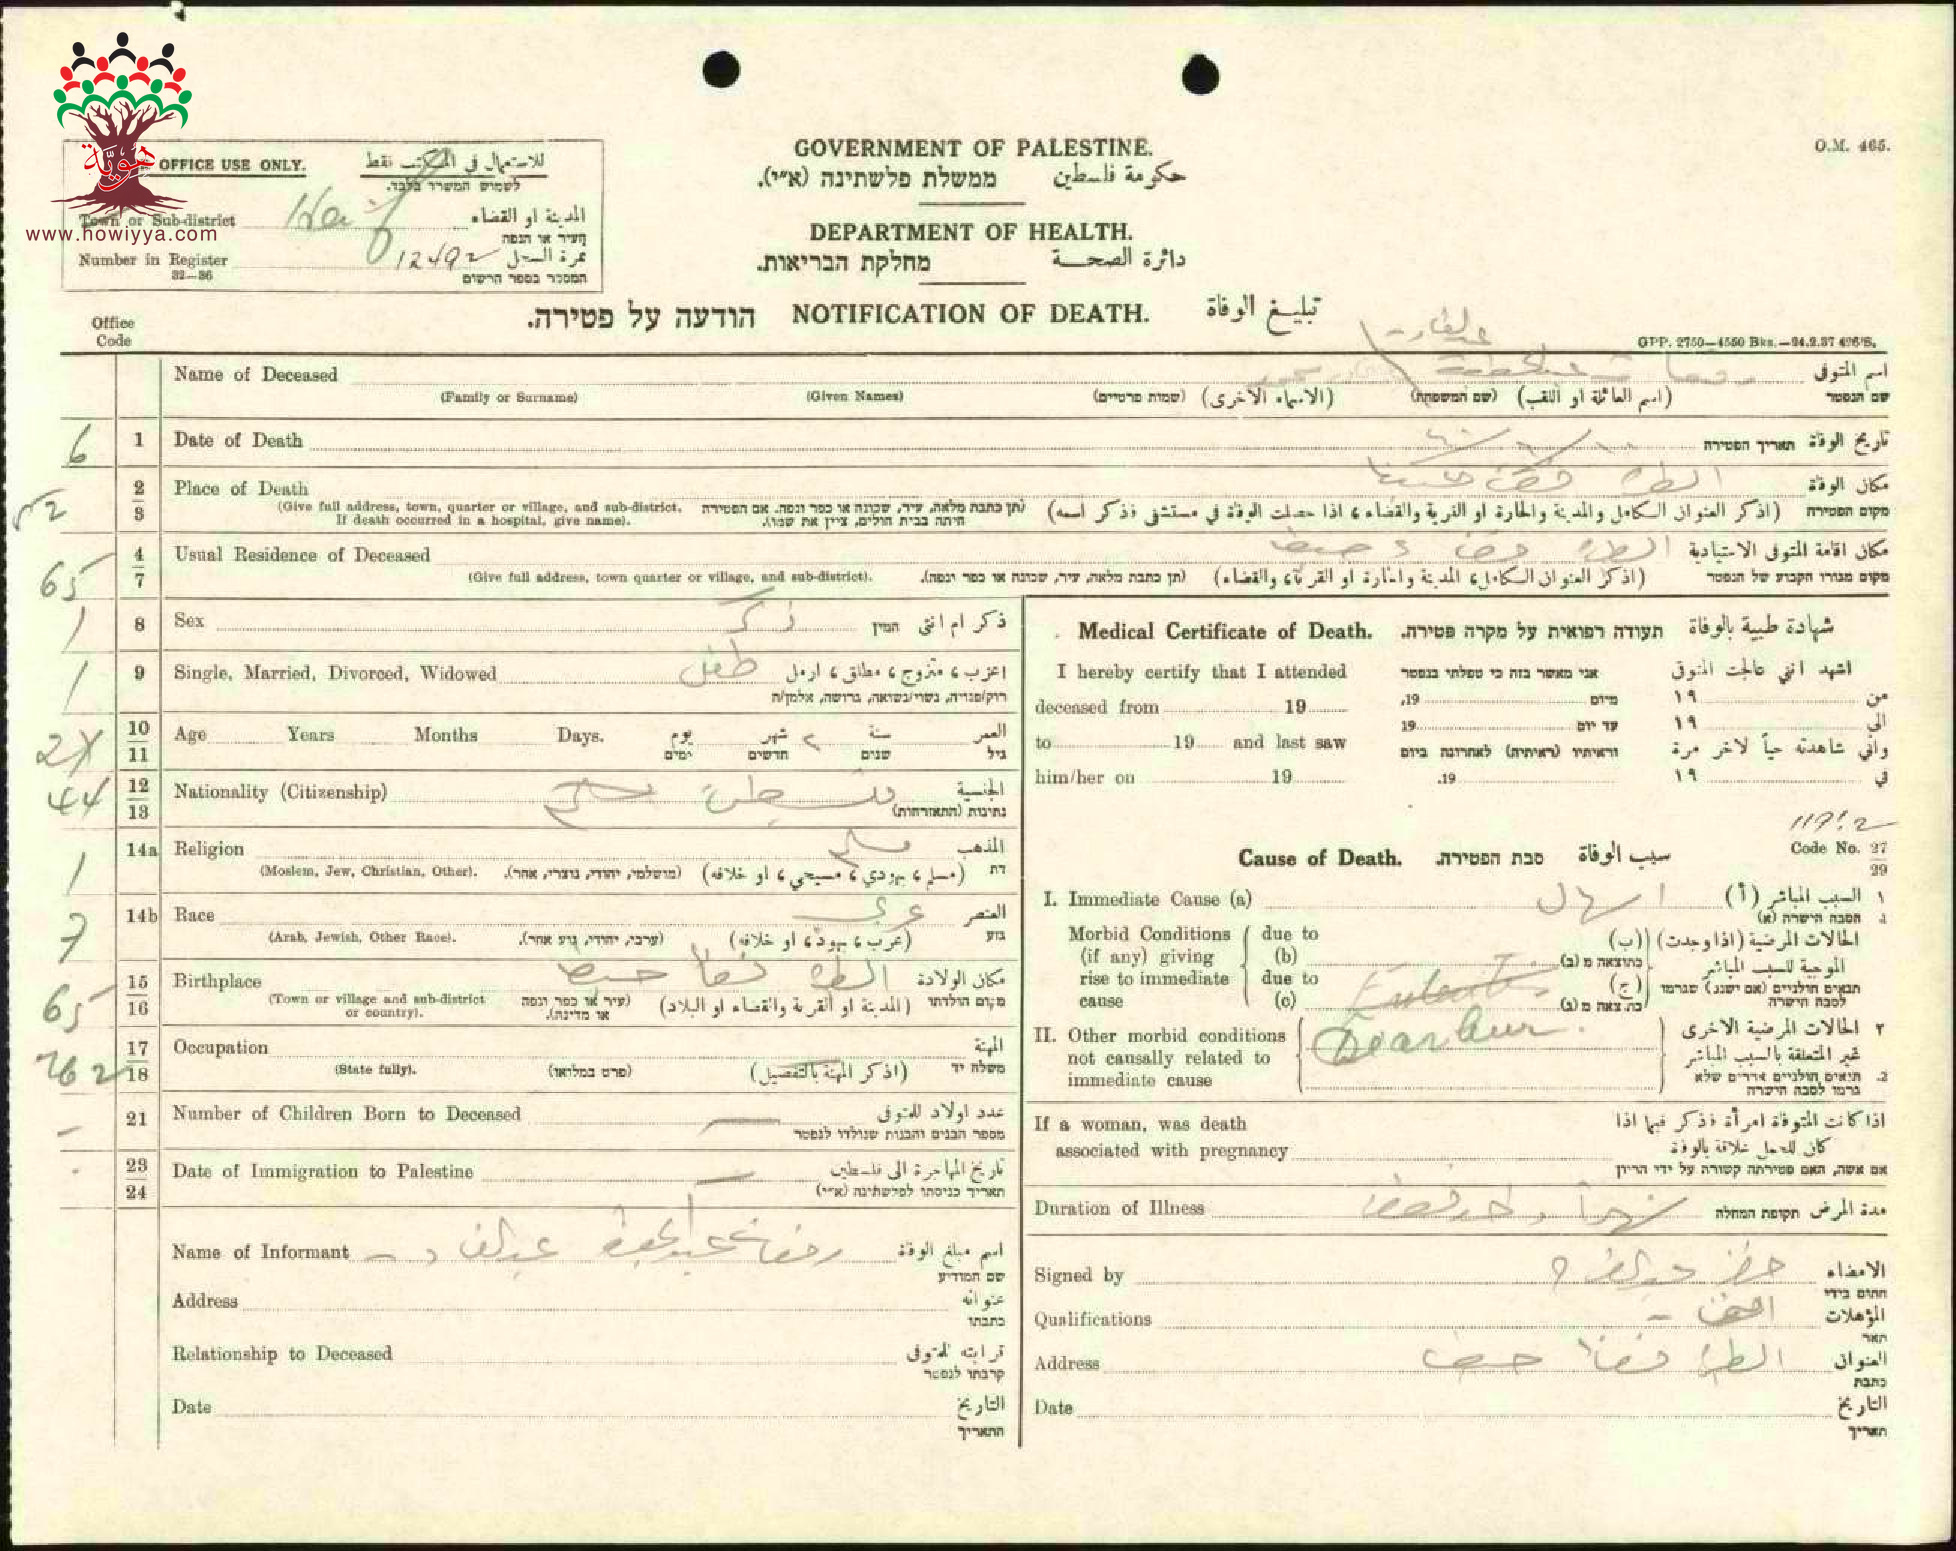 هوية
www.howiyya.com
OFFICE USE ONLY. للاستعمال في المكتب فقط
לשמוש המשרד בלבד.
Town or Sub-district Haifa المدينة او القضاء
העיר או הנפה
Number in Register 12492 نمرة السجل
32—36 המספר בספר הרשום
O.M. 465.
GOVERNMENT OF PALESTINE.
ממשלת פלשתינה (א״י). حكومة فلسطين
DEPARTMENT OF HEALTH.
מחלקת הבריאות. دائرة الصحة
הודעה על פטירה. NOTIFICATION OF DEATH. تبليغ الوفاة
GPP. 2750—4550 Bks.—24.2.37 426/S.
Office
Code
Name of Deceased اسم المتوفى
(Family or Surname) (Given Names) (שמות פרטיים) (الاسماء الاخرى) (שם המשפחה) (اسم العائلة او اللقب) שם הנפטר
6 1 Date of Death תאריך הפטירה تاريخ الوفاة
52 2 3 Place of Death الطيره مكان الوفاة
(Give full address, town, quarter or village, and sub-district. If death occurred in a hospital, give name). (תן כתבת מלאה, עיר, שכונה או כפר ונפה. אם הפטירה היתה בבית חולים, ציין את שמו). (اذكر العنوان الكامل والمدينة والحارة او القرية والقضاء، اذا حصلت الوفاة في مستشفى فذكر اسمه) מקום הפטירה
65 4 7 Usual Residence of Deceased الطيره قضاء حيفا مكان اقامة المتوفى الاعتيادية
(Give full address, town quarter or village, and sub-district). (תן כתבת מלאה, עיר, שכונה או כפר ונפה). (اذكر العنوان الكامل، المدينة والحارة او القرية، والقضاء) מקום מגוריו הקבוע של הנפטר
1 8 Sex ذكر המין ذكر ام انثى
1 9 Single, Married, Divorced, Widowed طفل اعزب، متزوج، مطلق، ارمل
רוק/פנויה, נשוי/נשואה, גרושה, אלמן/ה
10 11 Age Years Months Days. يوم شهر ٢ سنة العمر
ימים חדשים שנים גיל
44 12 13 Nationality (Citizenship) فلسطيني الجنسية
נתינות (התאזרחות)
1 14a Religion مسلم المذهب
(Moslem, Jew, Christian, Other). (מושלמי, יהודי, נוצרי, אחר). (مسلم، يهودي، مسيحي، او خلافه) דת
7 14b Race عربي العنصر
(Arab, Jewish, Other Race). (ערבי, יהודי, גזע אחר). (عرب، يهود، او خلافه) גזע
65 15 16 Birthplace الطيره قضا حيفا مكان الولادة
(Town or village and sub-district or country). (עיר או כפר ונפה או מדינה). (المدينة او القرية والقضاء او البلاد) מקום הולדתו
762 17 18 Occupation المهنة
(State fully). (פרט במלואו) (اذكر المهنة بالتفصيل) משלח יד
21 Number of Children Born to Deceased عدد اولاد للمتوفى
מספר הבנים והבנות שנולדו לנפטר
23 24 Date of Immigration to Palestine تاريخ المهاجرة الى فلسطين
תאריך כניסתו לפלשתינה (א״י)
Name of Informant اسم مبلغ الوفاة
שם המודיע
Address عنوانه
כתבתו
Relationship to Deceased قرابته للمتوفى
קרבתו לנפטר
Date التاريخ
התאריך
Medical Certificate of Death. תעודה רפואית על מקרה פטירה. شهادة طبية بالوفاة
I hereby certify that I attended אני מאשר בזה כי טפלתי בנפטר اشهد انني عالجت المتوفى
deceased from 19 מיום 19, من ١٩
to 19 and last saw עד יום 19 الى ١٩
וראיתיו (ראיתיה) לאחרונה ביום واني شاهدته حياً لاخر مرة
him/her on 19 19. في ١٩
Cause of Death. סבת הפטירה. سبب الوفاة
Code No. 27 29
I. Immediate Cause (a) اسهال السبب المباشر (أ) ١
הסבה הישרה (א) 1.
Morbid Conditions (if any) giving rise to immediate cause
due to (b) כתוצאה מ (ב) (ب)
due to (c) כתוצאה מ (ג) (ج)
الحالات المرضية (اذا وجدت) الموجبة للسبب المباشر
תנאים חולניים (אם ישנם) שגרמו לסבה הישרה
Enteritis
II. Other morbid conditions not causally related to immediate cause Diarrhoea
٢ الحالات المرضية الاخرى غير المتعلقة بالسبب المباشر
2. תנאים חולניים אחרים שלא גרמו לסבה הישרה
If a woman, was death associated with pregnancy
اذا كانت المتوفاة امرأة فذكر فيها اذا كان للحمل علاقة بالوفاة
אם אשה, האם פטירתה קשורה על ידי הריון
Duration of Illness תקופת המחלה مدة المرض
Signed by الامضاء
חתום בידי
Qualifications المؤهلات
תאר
Address الطيره قضا حيفا العنوان
כתבת
Date التاريخ
תאריך